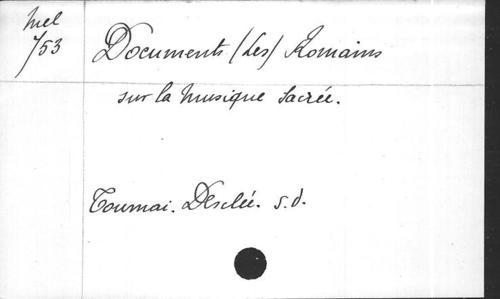 Mel
753
Documents (Les) Romains
sur la Musique Sacrée.
Tournai. Desclée. s.d.